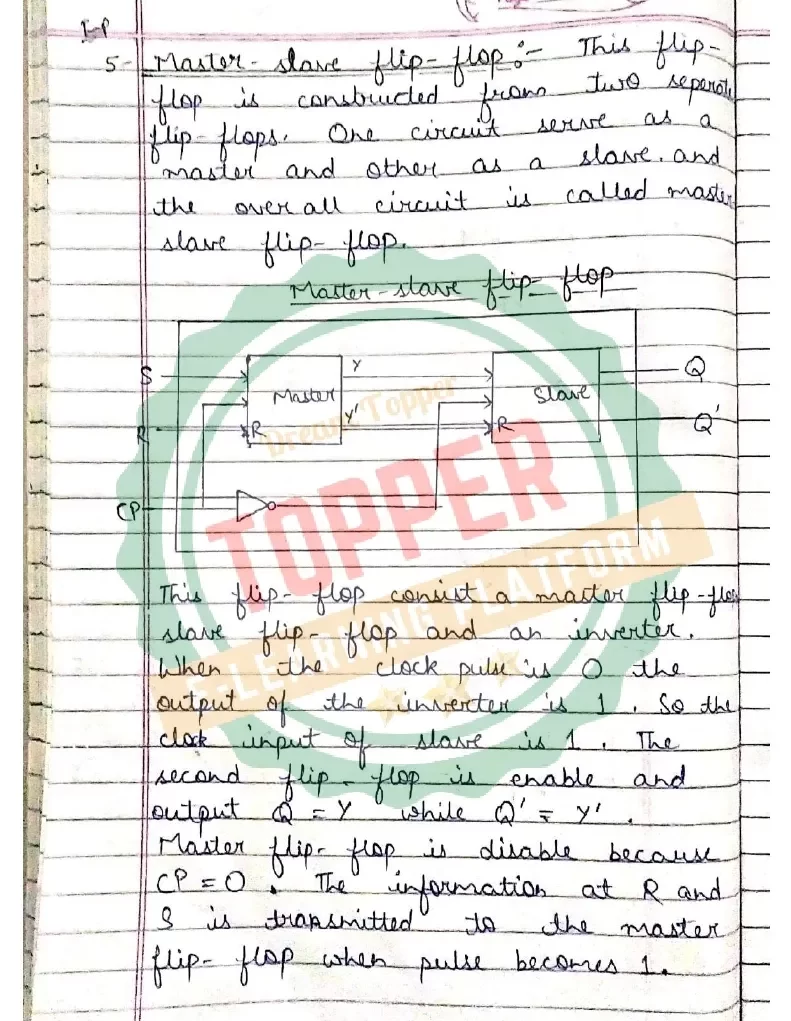 I-P
5- Master-slave flip-flop :- This flip-
flop is constructed from two seperate
flip-flops. One circuit serve as a
master and other as a slave. and
the over all circuit is called master
slave flip-flop.
Master-slave flip-flop
S Master Y Slave Q
R R Y' R Q'
CP
Dream Topper
TOPPER
E-LEARNING PLATFORM
This flip-flop consist a master flip-flop
slave flip-flop and an inverter.
When the clock pulse is 0 the
output of the inverter is 1. So the
clock input of slave is 1. The
second flip-flop is enable and
output Q = Y while Q' = Y'.
Master flip-flop is disable because
CP = 0. The information at R and
S is transmitted to the master
flip-flop when pulse becomes 1.